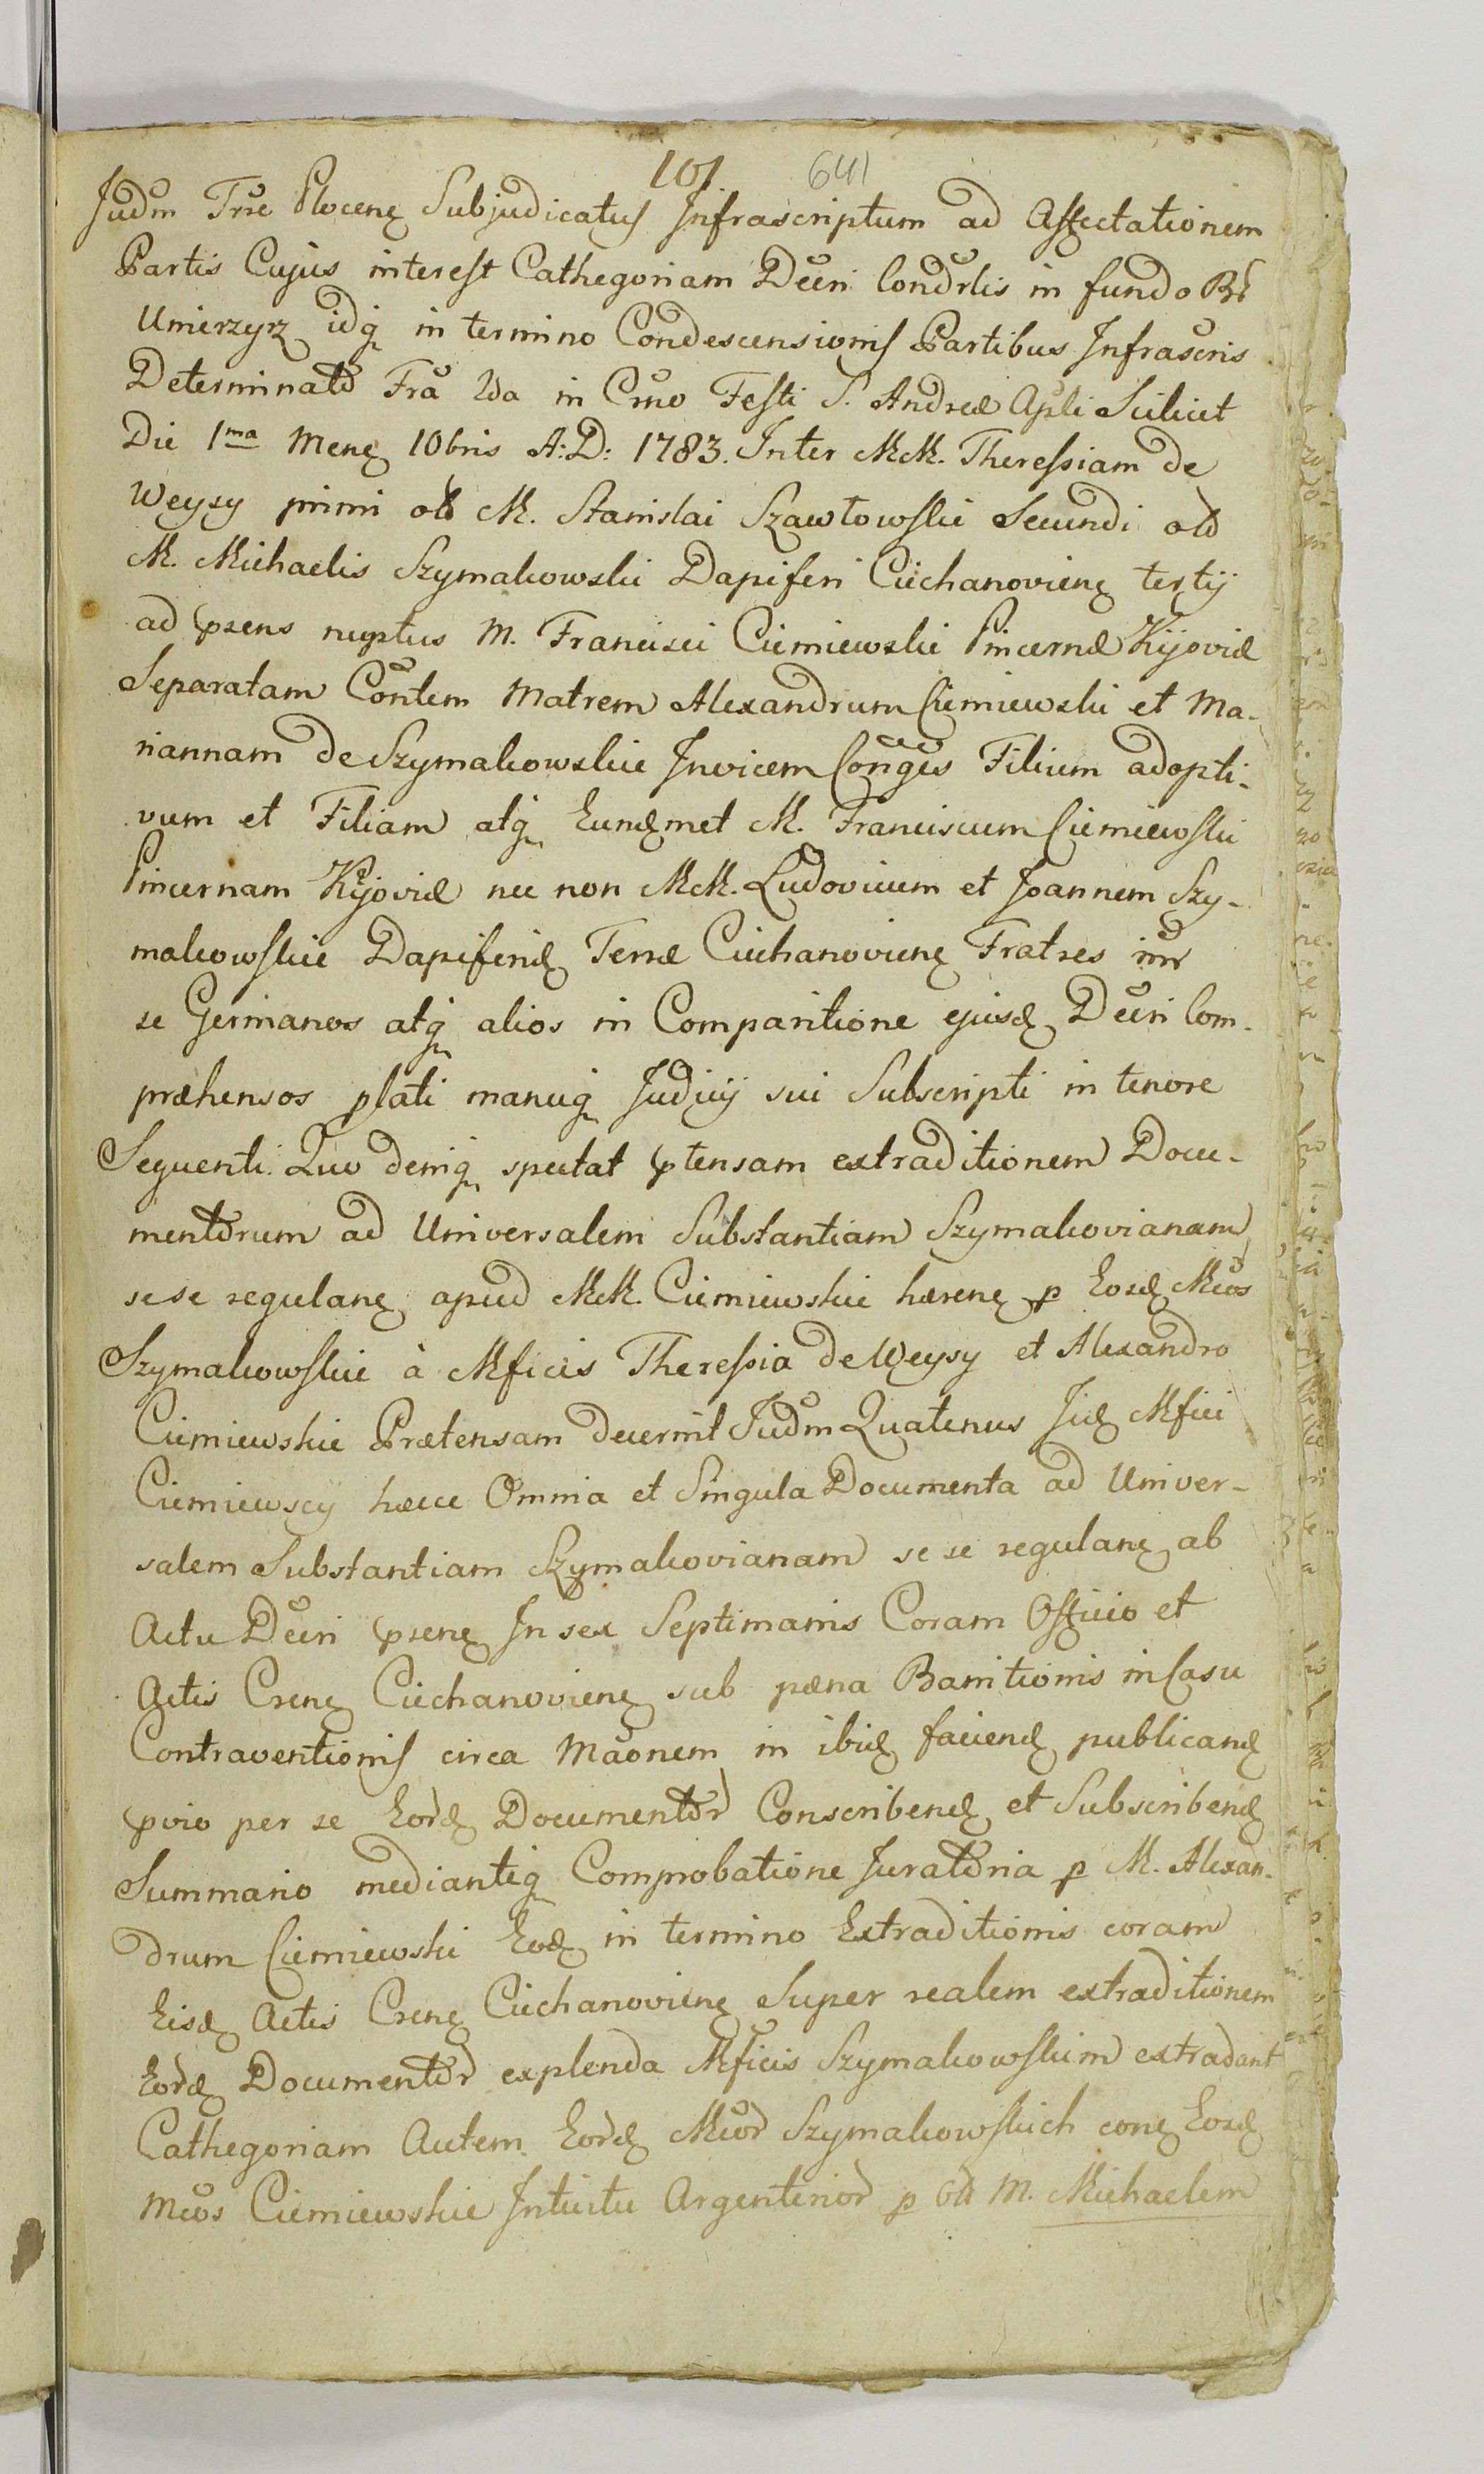 101. 641
Judm Trre Plocenę Subjudicatus Infrascriptum ad Affectationem
Partis Cujus interest Cathegoriam Decri Condrlis in fundo
Umierzyrz idq in termino Condescensionis Partibus Infrascris
Determinato Fra 2da in Crno Festi S. Andreæ Apli Scilicet
Die 1ma Menę 10bris A:D: 1783. Inter MM. Theressiam de
Weysy primi olo M. Stanislai Szawłowski Secundi olo
M. Michaelis Szymakowski Dapiferi Ciechanovienę tertij
ad prens nuptus M. Francisci Ciemiewski Pincernæ Kijoviæ
Separatam Contem Matrem Alexandrum Ciemiewski et Ma-
riannam de Szymakowskie Invicem Conges Filium adopti-
vum et Filiam atq Eundmet M. Franciscum Ciemiewski
Pincernam Kijoviæ nec non MM. Ludovicum et Joannem Szy-
makowskie Dapiferid Terræ Ciechanovienę Fratres inr
se Germanos atq alios in Comparitione ejusd Decri Com-
præhensos plati manuq Judicij sui Subscripti in tenore
Sequenti. Quo deniq spectat ptensam extraditionem Docu-
mentorum ad Universalem Substantiam Szymakovianam
sese regulanę apud MM. Ciemiewskie hærenę p Eosd Mcos
Szymakowskie à Mficis Theressia de Weysy et Alexandro
Ciemiewskie Prætensam decernit Judm Quatenus Jid Mfici
Ciemiewscy hæcce Omnia et Singula Documenta ad Univer-
salem Substantiam Szymakovianam se se regulanę ab
Actu Decri prenę In sex Septimanis Coram Officio et
Actis Crenę Ciechanovienę sub pæna Banitionis in Casu
Contraventionis circa Maonem in ibid faciend publicand
pvio per se Eord Documentor Conscribend et Subscribend
Summario mediantiq Comprobatione Juratoria p M. Alexan-
drum Ciemiewski Eod in termino Extraditionis coram
Eisd Actis Crenę Ciechanovienę Super realem extraditionem
Eord Documentor explenda Mficis Szymakowskim extradant
Cathegoriam Autem Eord Mcor Szymakowskich conę Eosd
Mcos Ciemiewskie Intuitu Argenterior p olo M. Michaelem